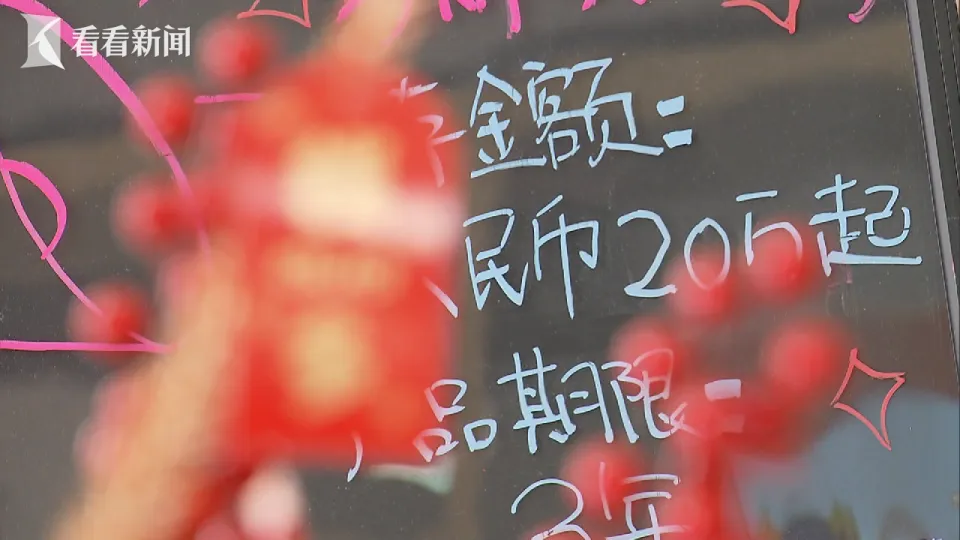 看看新闻
金额:
民币20万起
品期限:
3年